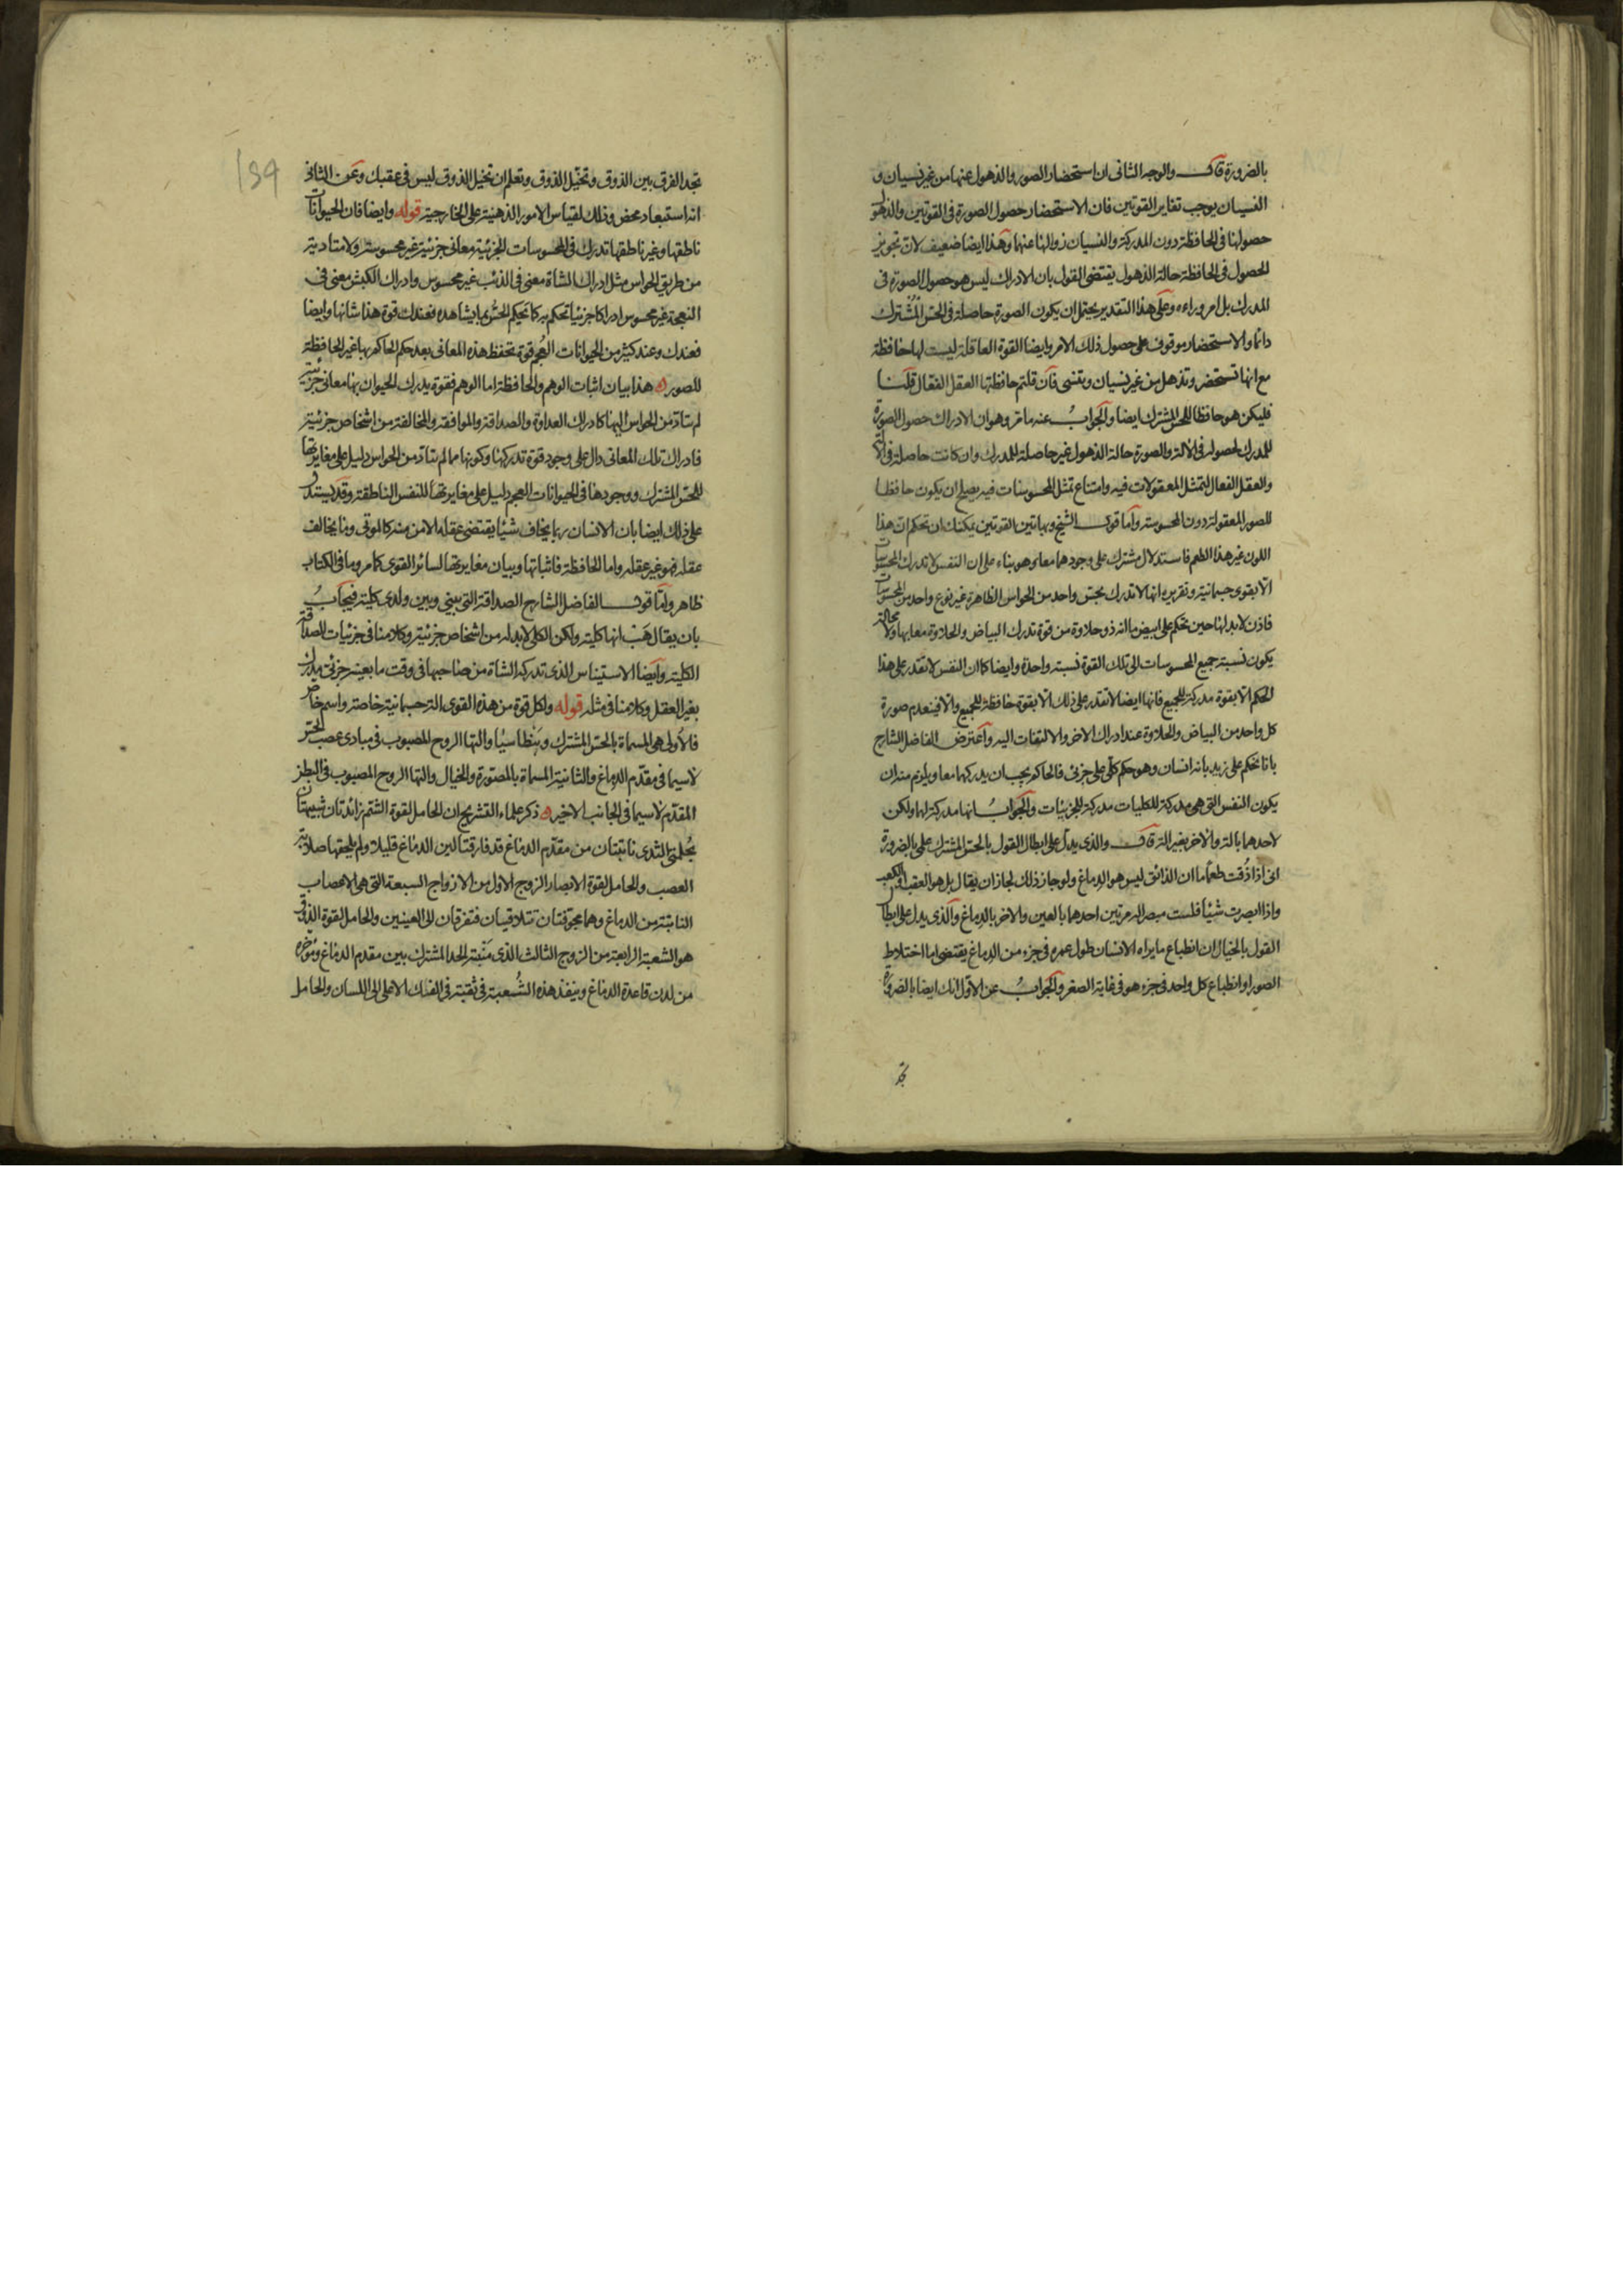 بالضرورة قال والوجه الثانى ان استحضار الصور والذهول عنها من غير نسيان و
النسيان يوجب تغاير القوتين فان الاستحضار حصول الصورة فى القوتين والذهول
حصولها فى الحافظة دون المدركة والنسيان زوالها عنهما وهذا ايضا ضعيف لان تجويز
الحصول فى الحافظة حالة الذهول يقتضى القول بان الادراك ليس هو حصول الصورة فى
المدرك بل امر وراءه وعلى هذا التقدير يحتمل ان يكون الصورة حاصلة فى الحس المشترك
دائما والاستحضار موقوف على حصول ذلك الامر وايضا القوة العاقلة ليست لها حافظة
مع انها تستحضر وتذهل من غير نسيان وتنسى فان قلتم حافظتها العقل الفعال قلنا
فليكن هو حافظا للحس المشترك ايضا والجواب عنه ما مر وهو ان الادراك حصول الصورة
للمدرك لحصوله فى الالة والصورة حالة الذهول غير حاصلة للمدرك وان كانت حاصلة فى الالة
والعقل الفعال لتمثل المعقولات فيه وامتناع تمثل المحسوسات فيه يصلح ان يكون حافظا
للصور المعقولة دون المحسوسة واما قول الشيخ وبهاتين القوتين يمكنك ان تحكم ان هذا
اللون غير هذا الطعم فاستدلال مشترك على وجودهما معا وهو بناء على ان النفس لا تدرك المحسوسات
الا بقوى جسمانية وتقريره انها لا تدرك بحس واحد من الحواس الظاهرة غير نوع واحد من المحسوسات
فاذن لا بد لها حين تحكم على ابيض ما انه ذو حلاوة من قوة تدرك البياض والحلاوة معا بها ولا محالة
يكون نسبة جميع المحسوسات الى تلك القوة نسبة واحدة وايضا كما ان النفس لا تقدر على هذا
الحكم الا بقوة مدركة للجميع فانها ايضا لا تقدر على ذلك الا بقوة حافظة للجميع والا فينعدم صورة
كل واحد من البياض والحلاوة عند ادراك الاخر والالتفات اليه واعترض الفاضل الشارح
بانا نحكم على زيد بانه انسان وهو حكم كلى على جزئى فالحاكم يجب ان يدركهما معا ويلزم منه ان
يكون النفس التى هى مدركة للكليات مدركة للجزئيات والجواب انها مدركة لهما ولكن
لاحدهما بالة والاخر بغير الة قال والذى يدل على ابطال القول بالحس المشترك علمى بالضرورة
انى اذا ذقت طعاما ان الذائق ليس هو الدماغ ولو جاز ذلك لجاز ان يقال بل هو العقب او الكعب
واذا ابصرت شيئا فلست مبصرا له مرتين احدهما بالعين والاخر بالدماغ والذى يدل على ابطال
القول بالخيال ان انطباع ما يراه الانسان طول عمره فى جزء من الدماغ يقتضى اما اختلاط
الصور او انطباع كل واحد فى جزء هو فى غاية الصغر والجواب عن الاول انك ايضا بالضرورة
تجد
تجد الفرق بين الذوق وتخيل الذوق وتعلم ان تخيل الذوق ليس فى عقبك وعن الثانى
انه استبعاد محض وذلك لقياس الامور الذهنية على الخارجية قوله وايضا فان الحيوانات
ناطقها وغير ناطقها تدرك فى المحسوسات الجزئية معانى جزئية غير محسوسة ولا متادية
من طريق الحواس مثل ادراك الشاة معنى فى الذئب غير محسوس وادراك الكبش معنى فى
النعجة غير محسوس ادراكا جزئيا تحكم به كما يحكم الحس بما يشاهده فعندك قوة هذا شانها وايضا
فعندك وعند كثير من الحيوانات العجم قوة تحفظ هذه المعانى بعد حكم الحاكم بها غير الحافظة
للصور هذا بيان اثبات الوهم والحافظة اما الوهم فقوة يدرك الحيوان بها معانى جزئية
لم يتاد من الحواس اليها كادراك العداوة والصداقة والموافقة والمخالفة من اشخاص جزئية
فادراك تلك المعانى دال على وجود قوة تدركها وكونها مما لم يتاد من الحواس دليل على مغايرتها
للحس المشترك ووجودها فى الحيوانات العجم دليل على مغايرتها للنفس الناطقة وقد يستدل
على ذلك ايضا بان الانسان ربما يخاف شيئا يقتضى عقله الامن منه كالموتى وما يخالف
عقله فهو غير عقله واما الحافظة فاثباتها وبيان مغايرتها لسائر القوى كما مر وما فى الكتاب
ظاهر واما قول الفاضل الشارح الصداقة التى بينى وبين ولدى كلية فيجاب
بان يقال هب انها كلية ولكن الكلى لا بد له من اشخاص جزئية وكلامنا فى جزئيات الصداقة
الكلية وايضا الاستيناس الذى تدركه الشاة من صاحبها فى وقت ما بعينه جزئى يدرك
بغير العقل وكلامنا فى مثله قوله ولكل قوة من هذه القوى الة جسمانية خاصة واسم خاص
فالاولى هى المسماة بالحس المشترك وبنطاسيا والتها الروح المصبوب فى مبادى عصب الحس
لا سيما فى مقدم الدماغ والثانية المسماة بالمصورة والخيال والتها الروح المصبوب فى البطن
المقدم لا سيما فى الجانب الاخير ذكر علماء التشريح ان الحامل لقوة الشم زائدتان شبيهتان
بحلمتى الثدى نابتتان من مقدم الدماغ قد فارقتا لين الدماغ قليلا ولم يلحقها صلابة
العصب والحامل لقوة الابصار الزوج الاول من الازواج السبعة التى هى الاعصاب
النابتة من الدماغ وهما مجوفتان تتلاقيان فتفترقان الى العينين والحامل لقوة الذوق
هو الشعبة الرابعة من الزوج الثالث الذى منبته الحد المشترك بين مقدم الدماغ ومؤخره
من لدن قاعدة الدماغ وينفذ هذه الشعبة فى ثقبة فى الفك الاعلى الى اللسان والحامل